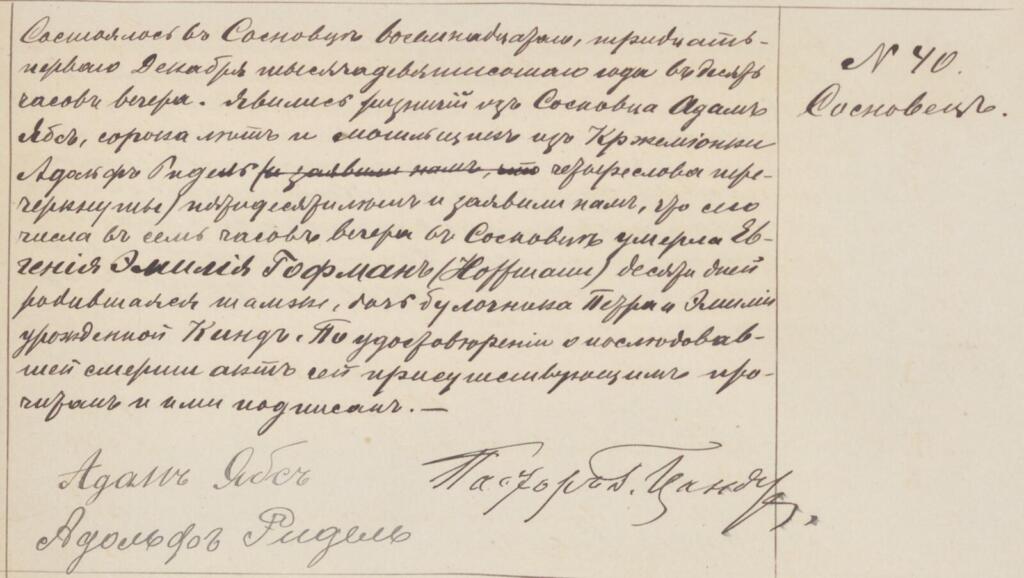 Состоялось въ Сосновцѣ восемнадцатаго, тридцать-
перваго Декабря тысяча девятисотаго года въ десять
часовъ вечера. Явились рѣзничій изъ Сосновца Адамъ
Ябсъ, сорока лѣтъ и могильщикъ изъ Кржеміонки
Адольфъ Ридель (и заявили намъ, что четыре слова пере-
черкнуты) пятидесяти лѣтъ и заявили намъ, что сего
числа въ семь часовъ вечера въ Сосновцѣ умерла Ев-
генія Эмилія Гофманъ (Hoffmann) десяти дней
родившаяся тамже, дочь булочника Петра и Эмиліи
урожденной Киндъ. По удостовѣреніи о послѣдовав-
шей смерти актъ сей присутствующимъ про-
читанъ и ими подписанъ. —
Адамъ Ябсъ
Пасторъ
Адольфъ Ридель
N 40.
Сосновецъ.